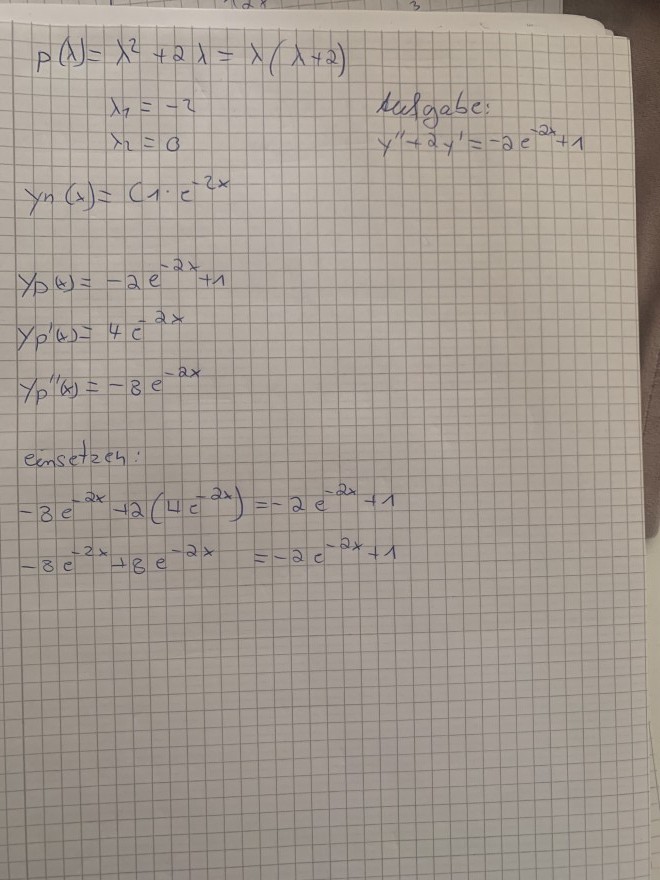 p(λ) = λ² + 2λ = λ(λ+2)
λ₁ = -2
λ₂ = 0
Aufgabe:
y'' + 2y' = -2e^-2x + 1
yh(x) = C1 · e^-2x
yp(x) = -2e^-2x + 1
yp'(x) = 4e^-2x
yp''(x) = -8e^-2x
einsetzen:
-8e^-2x + 2(4e^-2x) = -2e^-2x + 1
-8e^-2x + 8e^-2x = -2e^-2x + 1